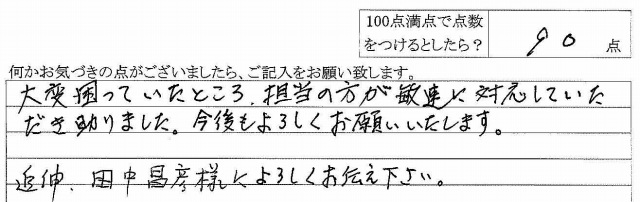 100点満点で点数
をつけるとしたら？ 90 点
何かお気づきの点がございましたら、ご記入をお願い致します。
大変困っていたところ、担当の方が敏速に対応していた
だき助りました。今後もよろしくお願いいたします。
追伸、田中昌彦様によろしくお伝え下さい。